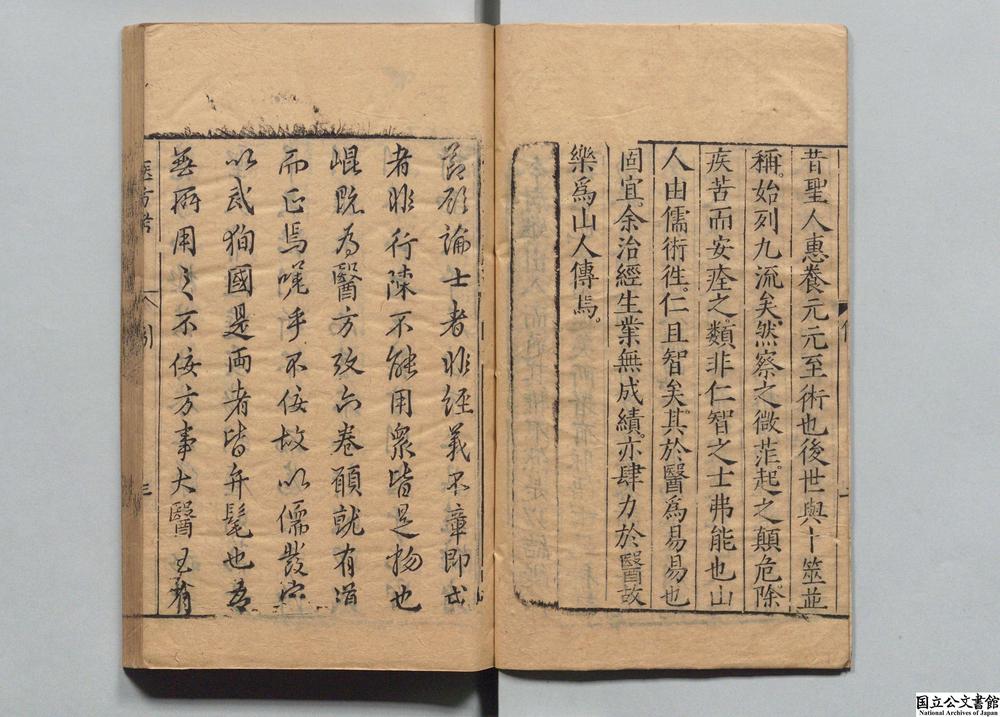 昔聖人惠養元元至術也後世與卜筮並
稱。始列九流矣。然察之微茫。起之顛危。除
疾苦而安痊之。類非仁智之士弗能也山
人由儒術徃。仁且智矣。其於醫爲易易也
固宜。余治經生業無成績。亦肆力於醫故
樂爲山人傳焉。
論士者非經義不章即戎
者非行陳不能用衆皆是物也
崐既為醫方攷六卷願就有道
而正焉嘆乎不佞故以儒發家
以武狥國是両者皆弁髦也吾
無所用之不佞方事大醫王有
医方考
引
三
国立公文書館
National Archives of Japan